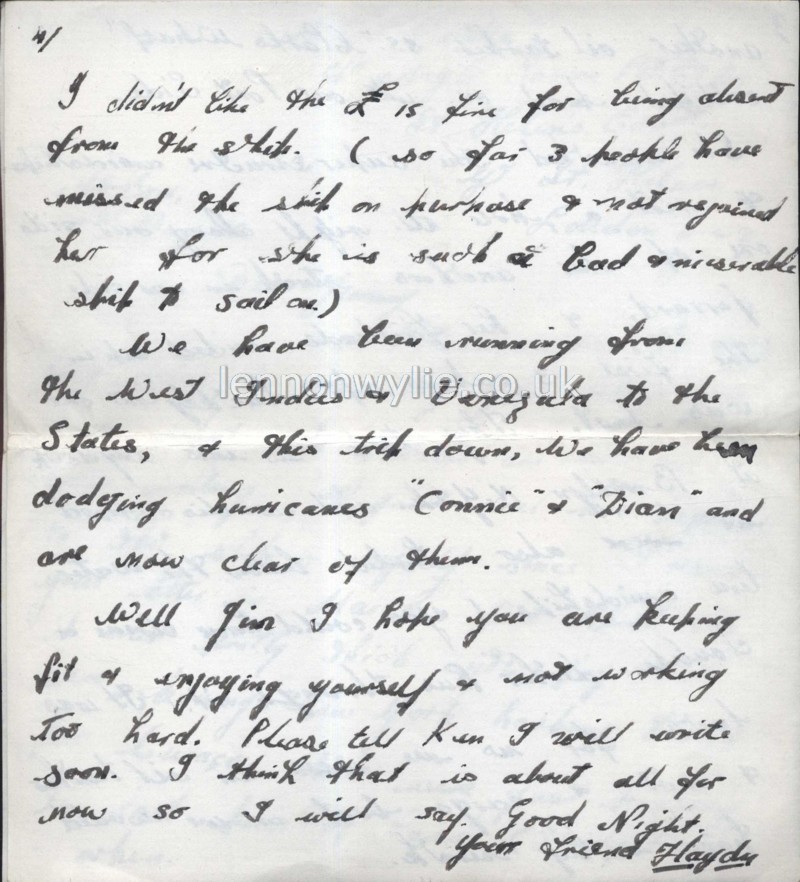 4/
I didn't like the £15 fine for being absent
from the ship. (so far 3 people have
missed the ship on purpose & not rejoined
her for she is such a bad & miserable
ship to sail on.)
We have been running from
the West Indies & Venezula to the
States, & this trip down, we have been
dodging hurricanes "Connie" & "Dian" and
are now clear of them.
Well Jim I hope you are keeping
fit & enjoying yourself & not working
too hard. Please tell Ken I will write
soon. I think that is about all for
now so I will say Good Night.
Your friend Haydn
lennonwylie.co.uk